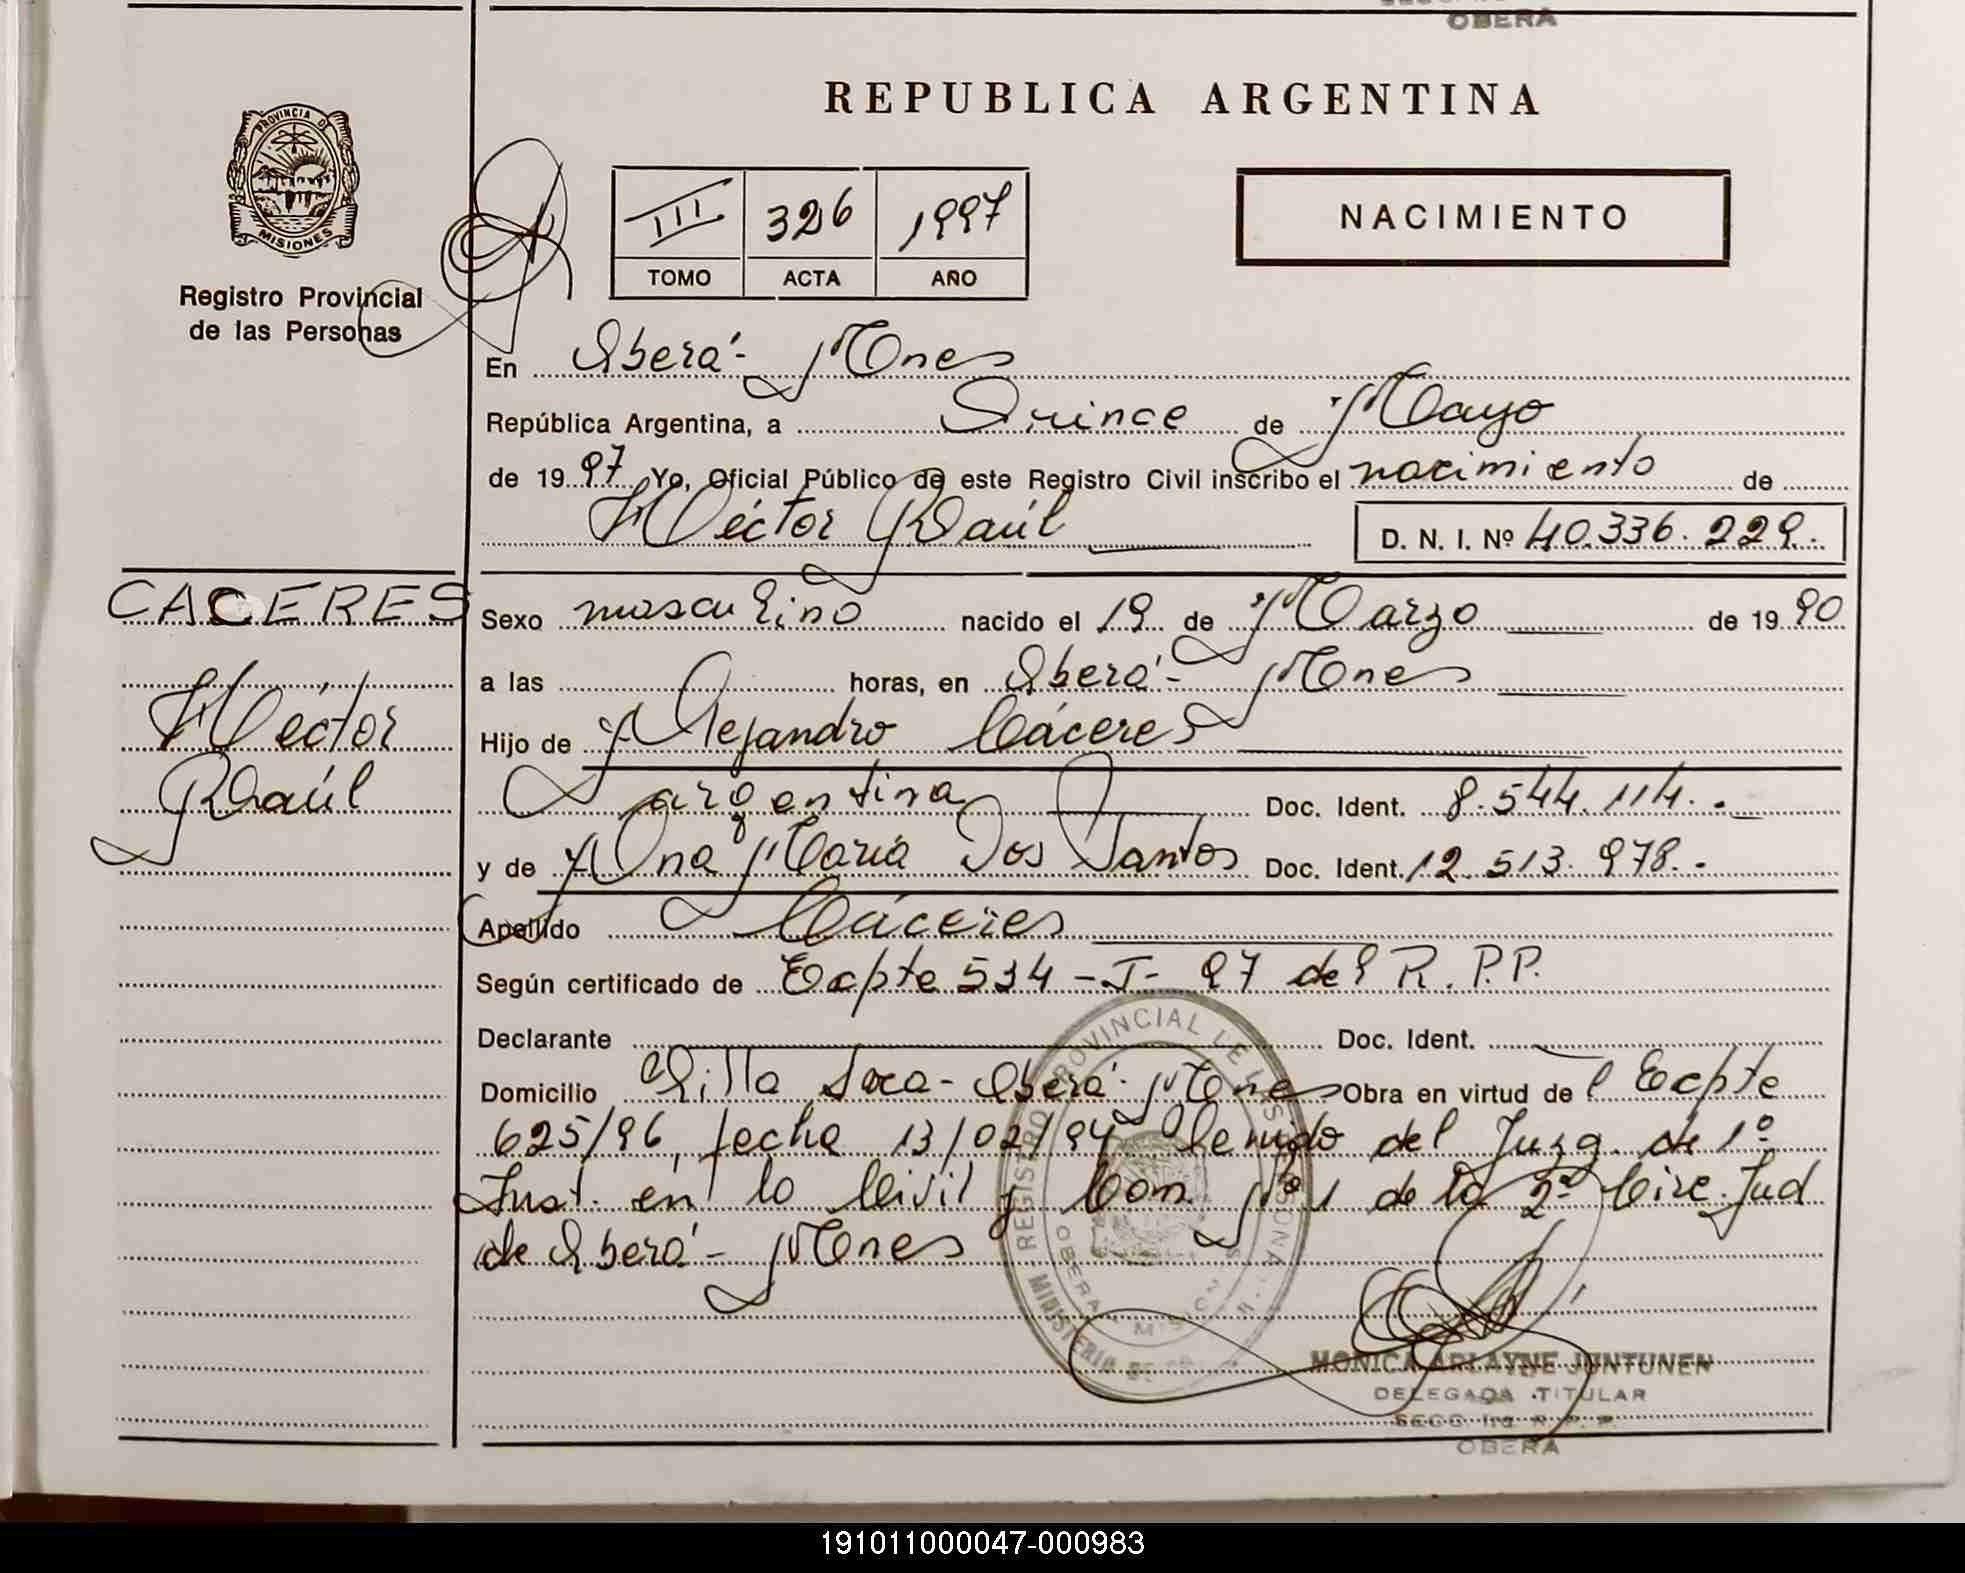 OBERA
REPUBLICA ARGENTINA
PROVINCIA DE
MISIONES
Registro Provincial
de las Personas
III 326 1997
TOMO ACTA AÑO
NACIMIENTO
En Oberá - Mnes
República Argentina, a Quince de Mayo
de 1997 Yo, Oficial Público de este Registro Civil inscribo el nacimiento de
Héctor Raúl D. N. I. Nº 40.336.229.
CACERES
Héctor
Raúl
Sexo masculino nacido el 19 de Marzo de 1990
a las horas, en Oberá - Mnes
Hijo de Alejandro Cáceres
argentina Doc. Ident. 8.544.114.-
y de Ana María Dos Santos Doc. Ident. 12.513.978.-
Apellido Cáceres
Según certificado de Ecpte 534 - I - 97 del R.P.P.
Declarante Doc. Ident.
Domicilio Villa - Oberá - Mnes Obra en virtud del Ecpte
625/96, fecha 13/02/97 del Juzg. de 1º
Inst. en lo Civil y Com. Nº 1 de la 2º Circ. Jud
de Oberá - Mnes
REGISTRO PROVINCIAL DE LAS PERSONAS
OBERA MISIONES
MINISTERIO DE
MONICA ARLAYNE JUNTUNEN
DELEGADA TITULAR
SECC 1ra R. P. P.
OBERA
191011000047-000983